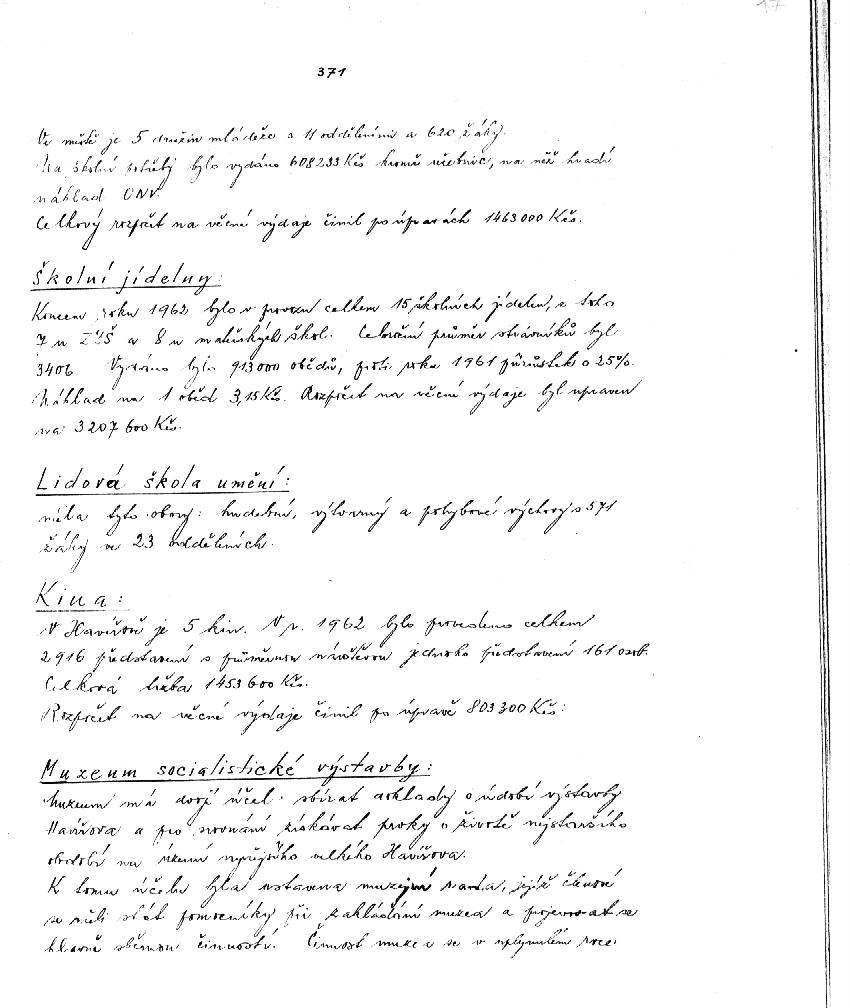 17
371
Ve městě je 5 družin mládeže s 11 odděleními a 620 žáky.
Na školní potřeby bylo vydáno 608233 Kčs kromě učebnic, na něž hradí
náklad ONV.
Celkový rozpočet na věcné výdaje činil po úpravách 1463000 Kčs.
Školní jídelny:
Koncem roku 1962 bylo v provozu celkem 15 školních jídelen, z toho
7 u ZDŠ a 8 u mateřských škol. Celoroční průměr strávníků byl
3406. Vydáno bylo 913000 obědů, proti roku 1961 přírůstek o 25%.
Náklad na 1 oběd 3,15 Kčs. Rozpočet na věcné výdaje byl upraven
na 3207600 Kčs.
Lidová škola umění:
měla tyto obory: hudební, výtvarný a pohybové výchovy s 571
žáky ve 23 odděleních.
Kina:
V Havířově je 5 kin. V r. 1962 bylo provedeno celkem
2916 představení s průměrnou návštěvou jednoho představení 161 osob.
Celková tržba 1453600 Kčs.
Rozpočet na věcné výdaje činil po úpravě 803300 Kčs.
Muzeum socialistické výstavby:
Muzeum má dvojí účel: sbírat doklady o údobí výstavby
Havířova a pro srovnání získávat prvky o životě nejstaršího
období na území nynějšího velkého Havířova.
K tomu účelu byla ustavena muzejní rada, jejíž členové
se měli stát pomocníky při zakládání muzea a projevovat se
hlavně sběrnou činností. Činnost muzea se v uplynulém roce